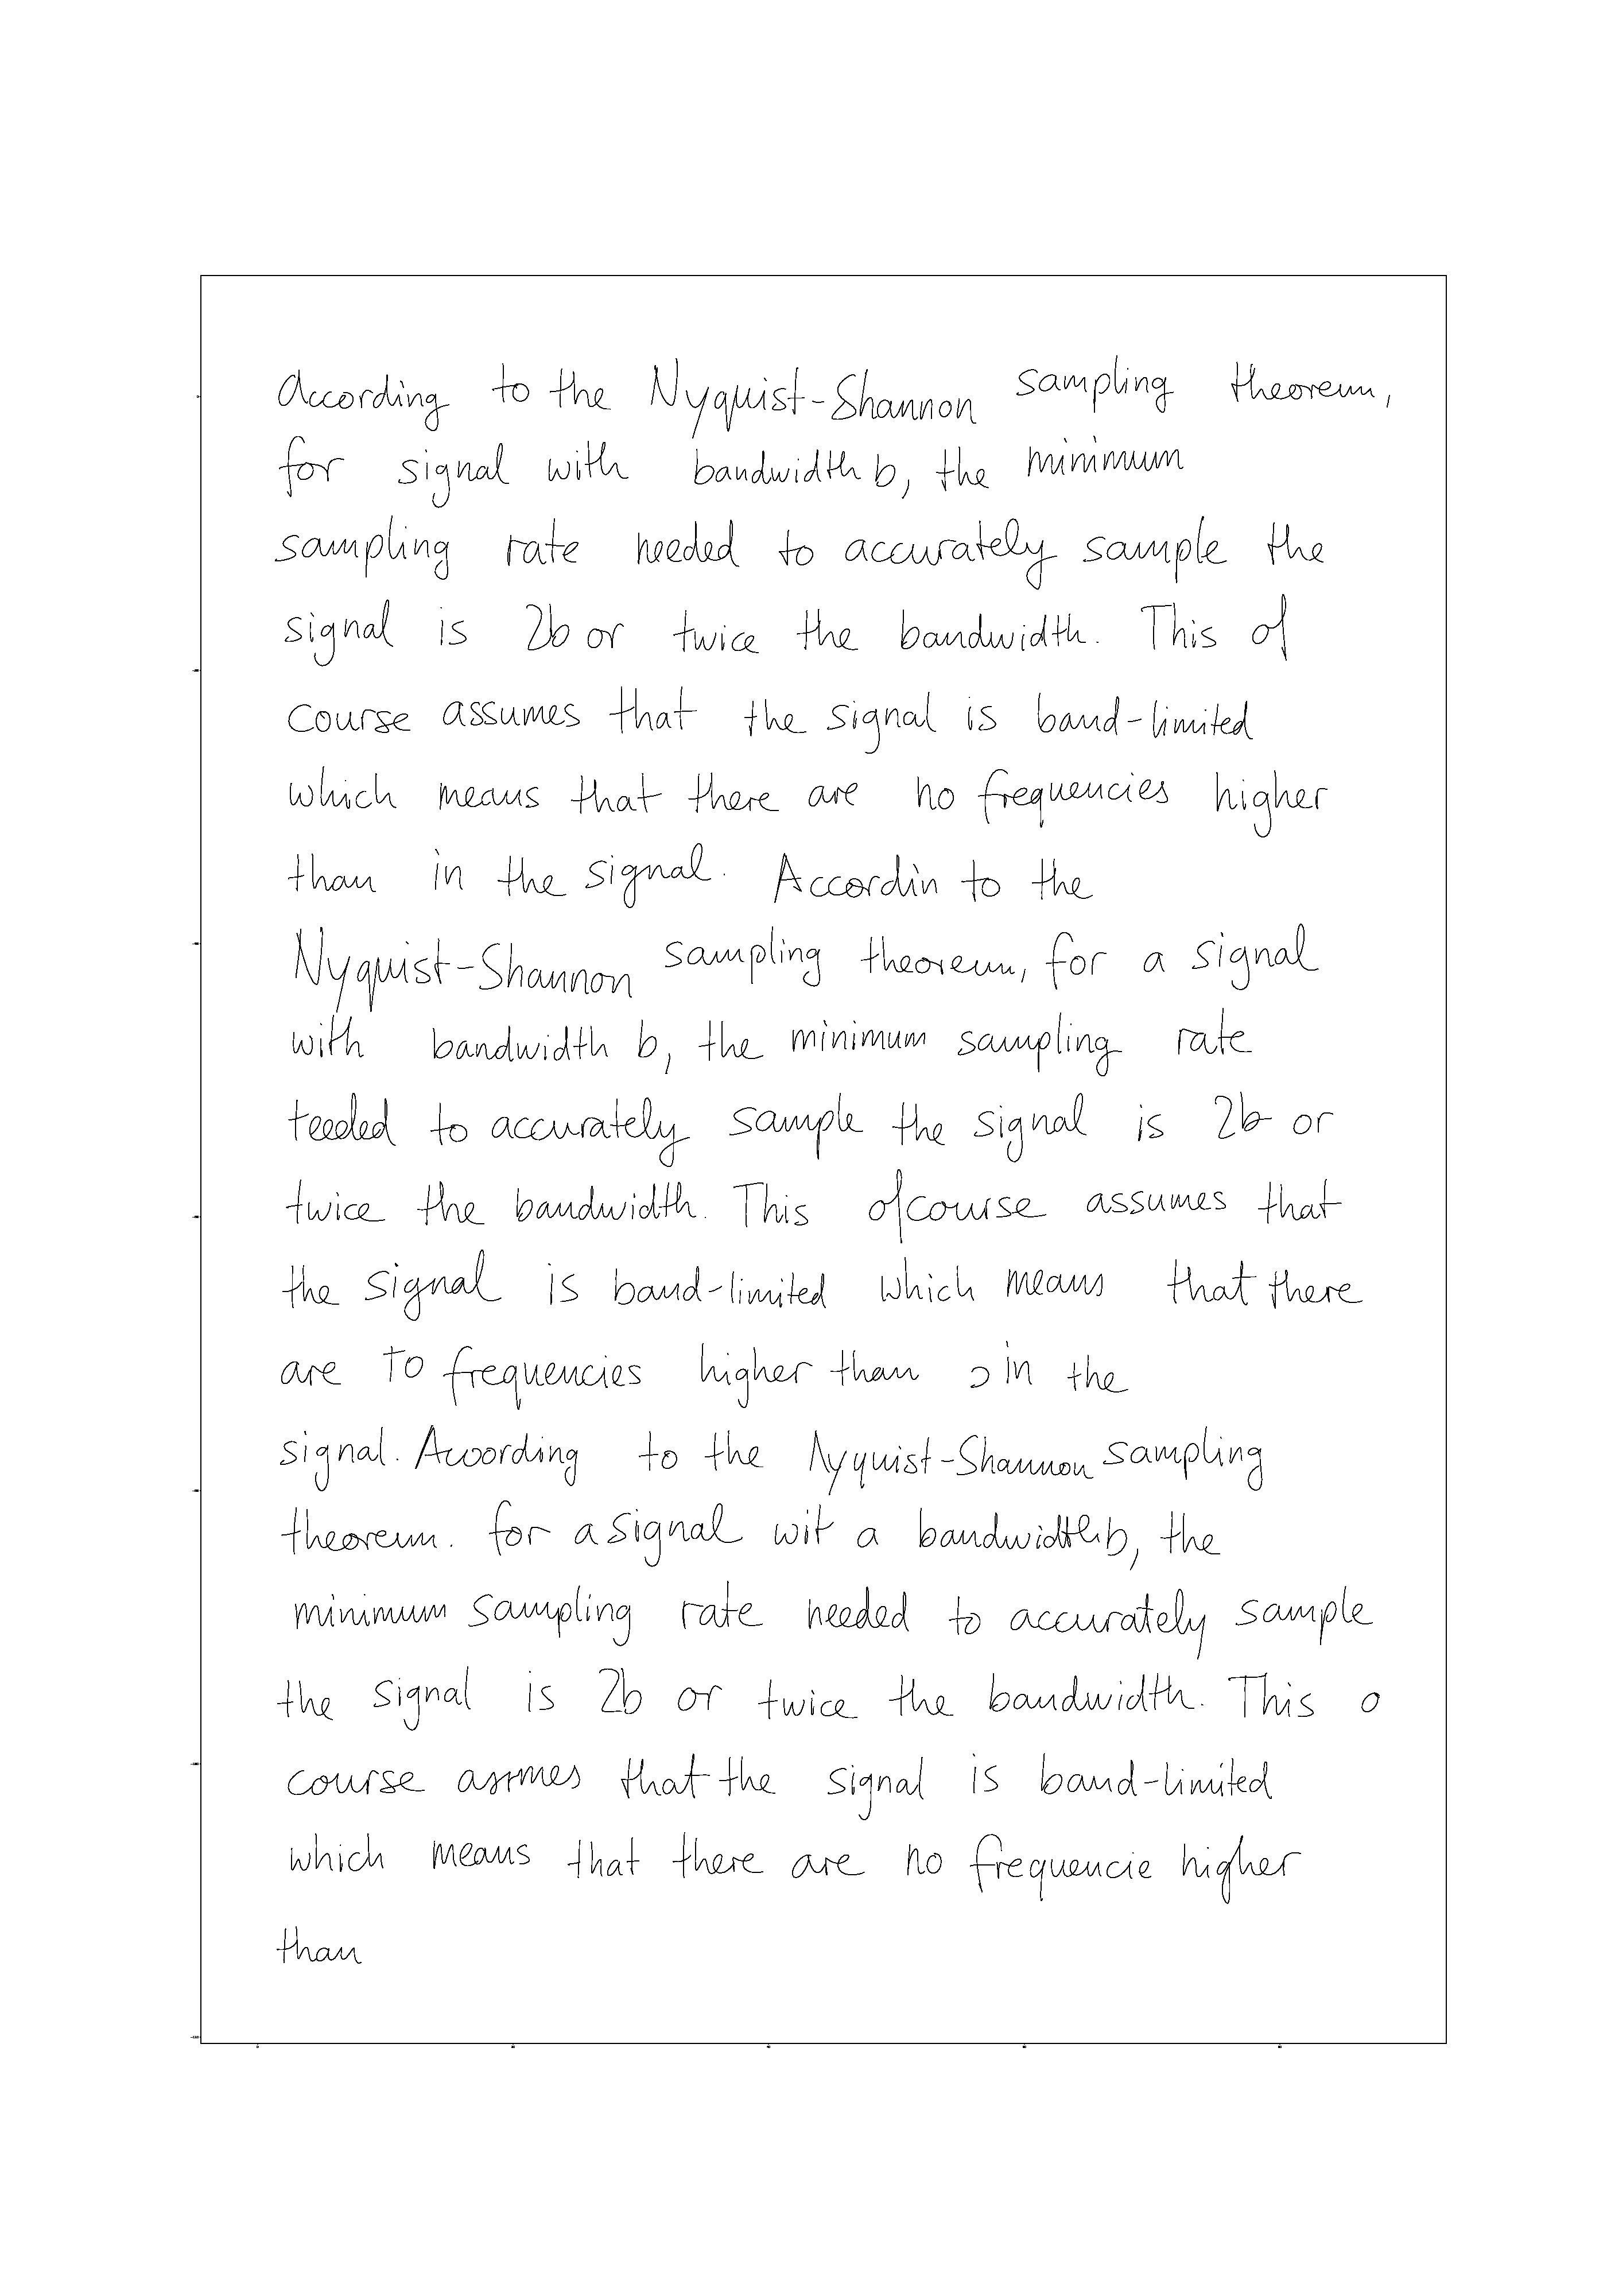 According to the Nyquist-Shannon sampling theorem,
for signal with bandwidth b, the minimum
sampling rate needed to accurately sample the
signal is 2b or twice the bandwidth. This of
course assumes that the signal is band-limited
which means that there are no frequencies higher
than in the signal. Accordin to the
Nyquist-Shannon sampling theorem, for a signal
with bandwidth b, the minimum sampling rate
teeded to accurately sample the signal is 2b or
twice the bandwidth. This ofcourse assumes that
the signal is band-limited which means that there
are to frequencies higher than in the
signal. According to the Nyquist-Shannon sampling
theorem. for a signal wit a bandwidth b, the
minimum sampling rate needed to accurately sample
the signal is 2b or twice the bandwidth. This o
course assmes that the signal is band-limited
which means that there are no frequencie higher
than